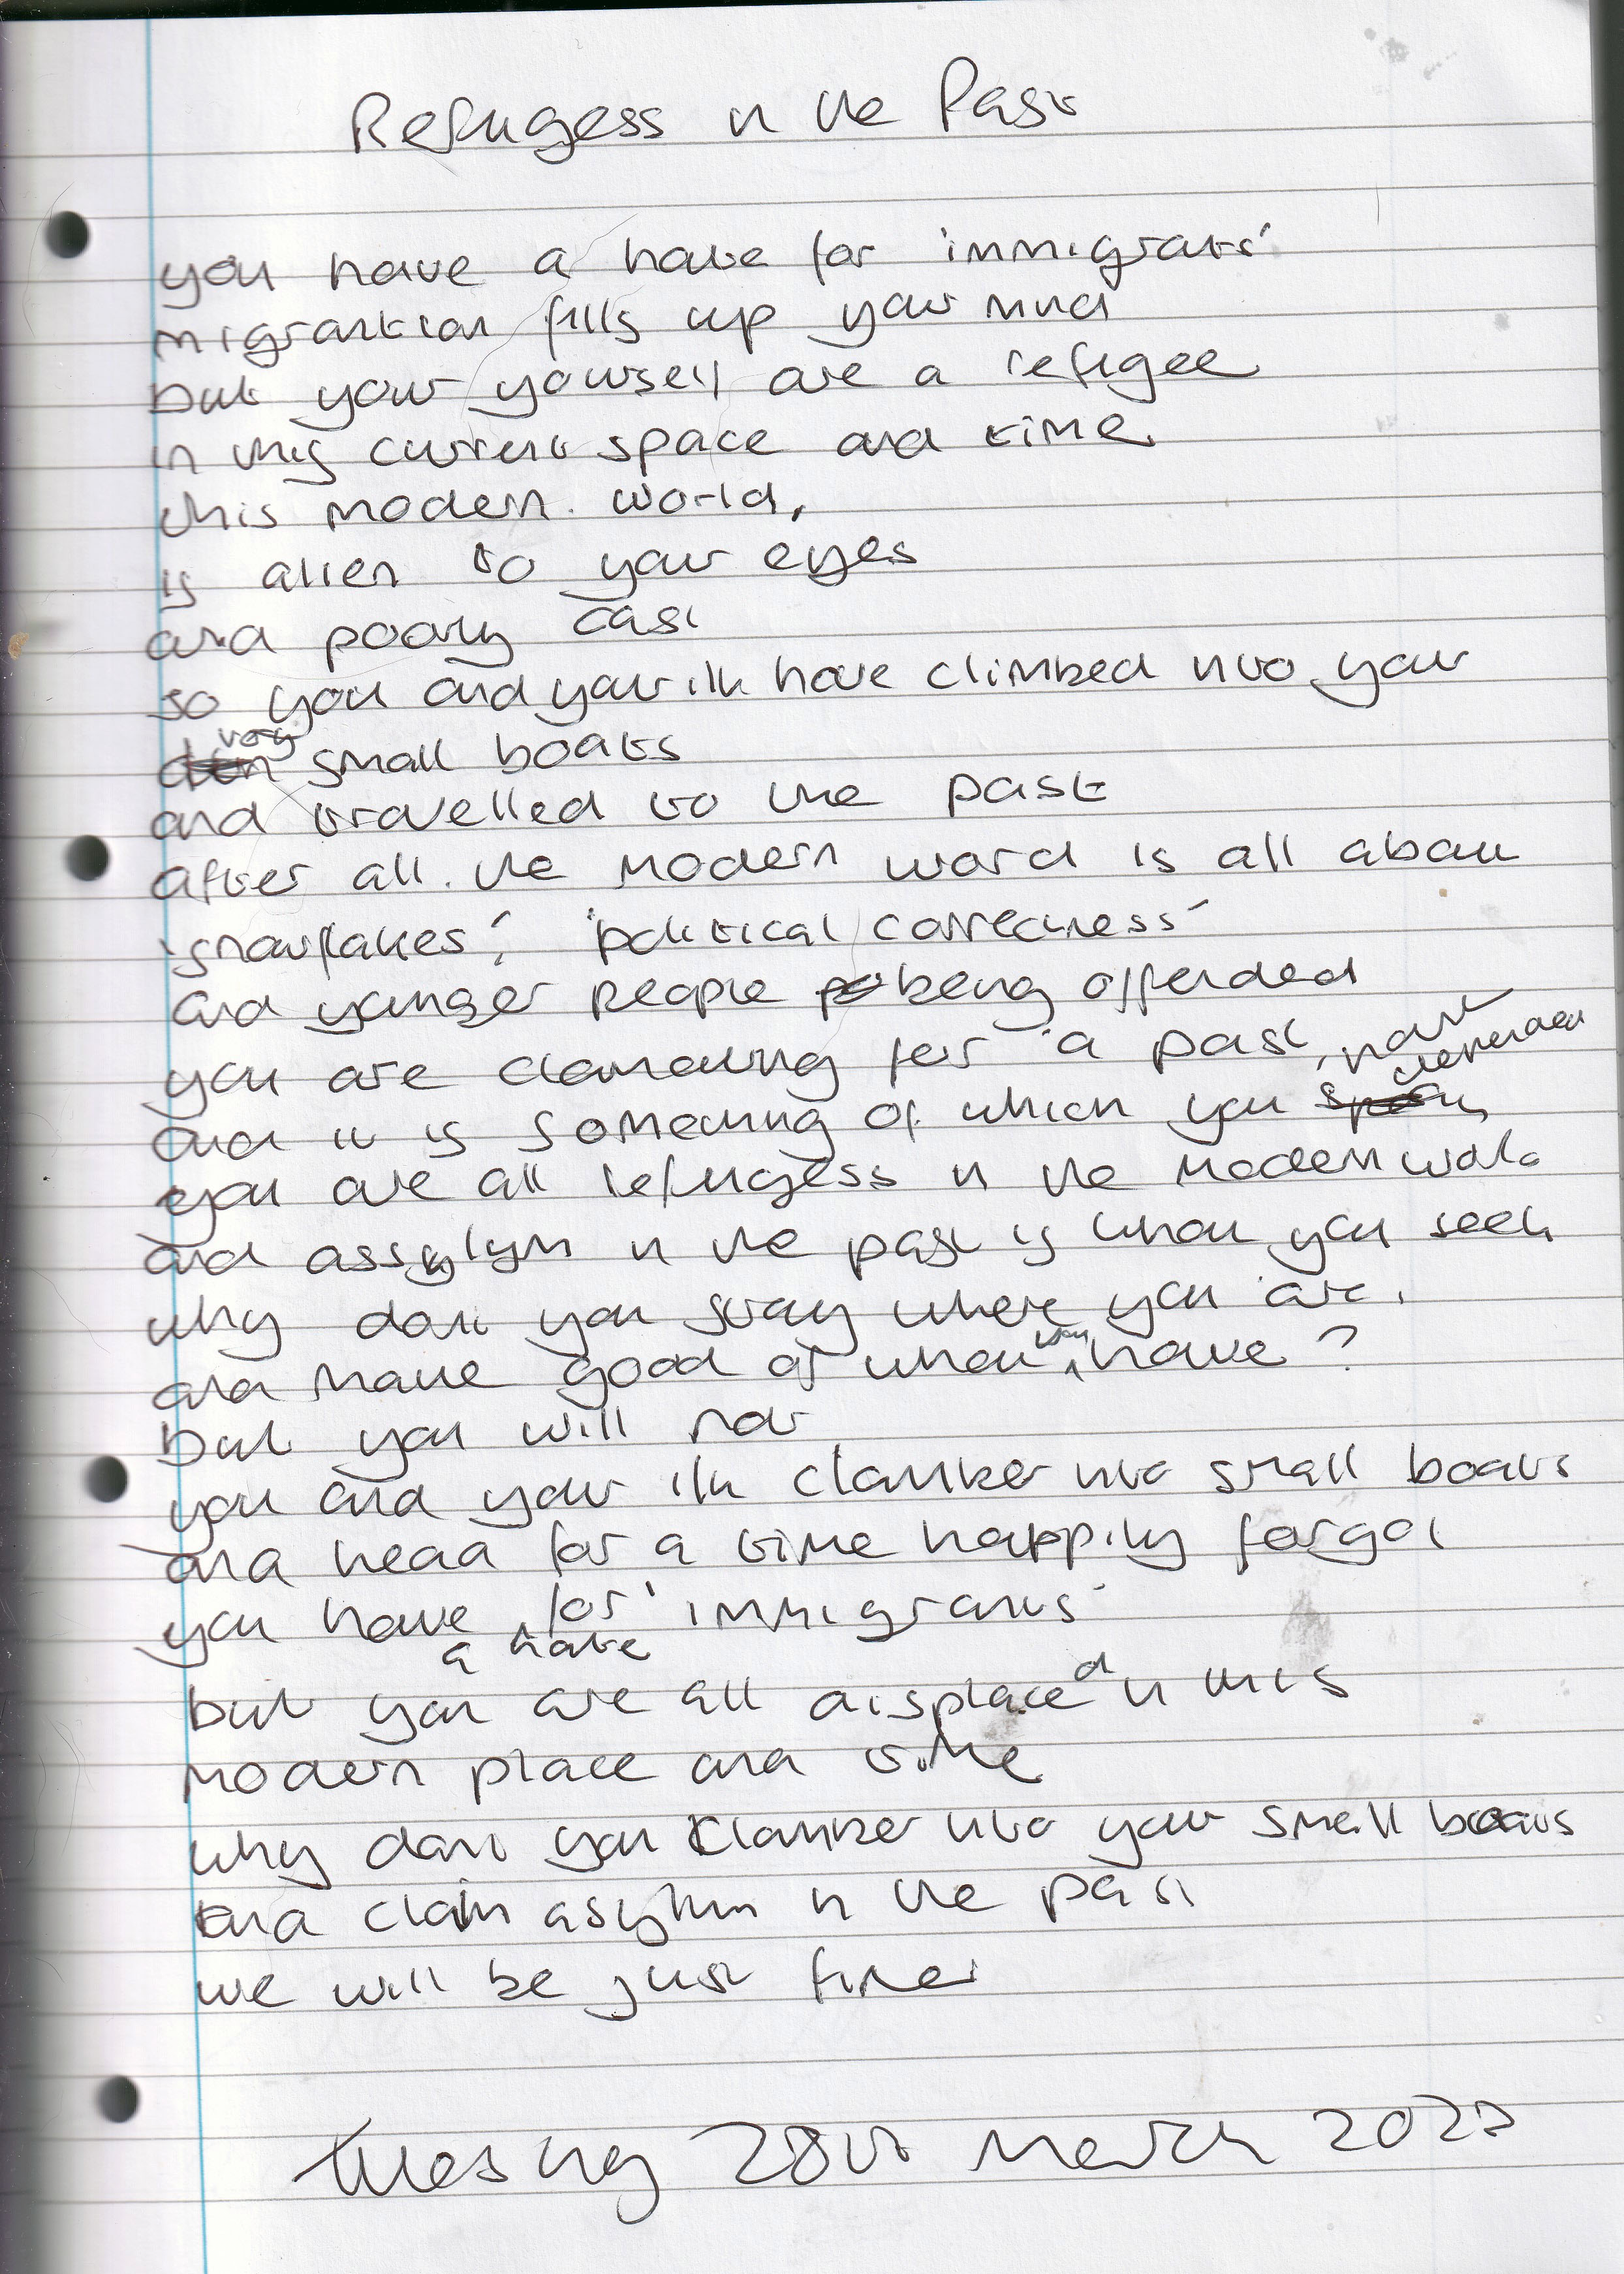 Refugess in the Past
you have a hate for 'immigrants'
migrantion fills up your mind
but your yourself are a refugee
in this current space and time
this modern world,
is alien to your eyes
and poorly cast
so you and your ilk have climbed into your
very small boats
and travelled to the past
after all. the modern word is all about
'snowflakes', 'political correctness'
and younger people being offended
you are clamouring for a past,
and it is something of which you
you are all refugess in the modern world
and assylym in the past is what you seek
why dont you stay where you are,
and make good of what you have?
but you will not
you and your ilk clamber into small boats
and head for a time happily forgot
you have a hate for 'immigrants'
but you are all displaced in this
modern place and time
why dont you clamber into your small boats
and claim asylum in the past
we will be just fine!
Tuesday 28th March 2023